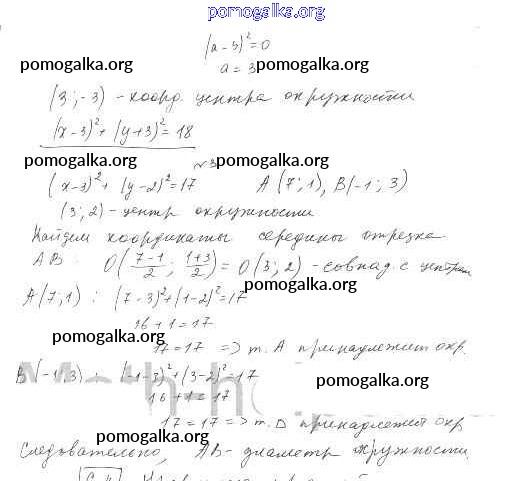 pomogalka.org
(a-3)²=0
pomogalka.org pomogalka.org
a = 3
(3;-3) - коорд. центра окружности
(x-3)²+(y+3)²=18
pomogalka.org №3 pomogalka.org
(x-3)²+(y-2)²=17 A(7;1), B(-1;3)
(3;2) - центр окружности
Найдем координаты середины отрезка
AB: O(7-1/2; 1+3/2) = O(3;2) - совпад. с центром
pomogalka.org
A(7;1): (7-3)²+(1-2)²=17
16+1=17
pomogalka.org
17=17 => т. A принадлежит окр.
B(-1;3): (-1-3)²+(3-2)²=17
pomogalka.org
16+1=17
17=17 => т. B принадлежит окр
pomogalka.org
Следовательно, AB - диаметр окружности.